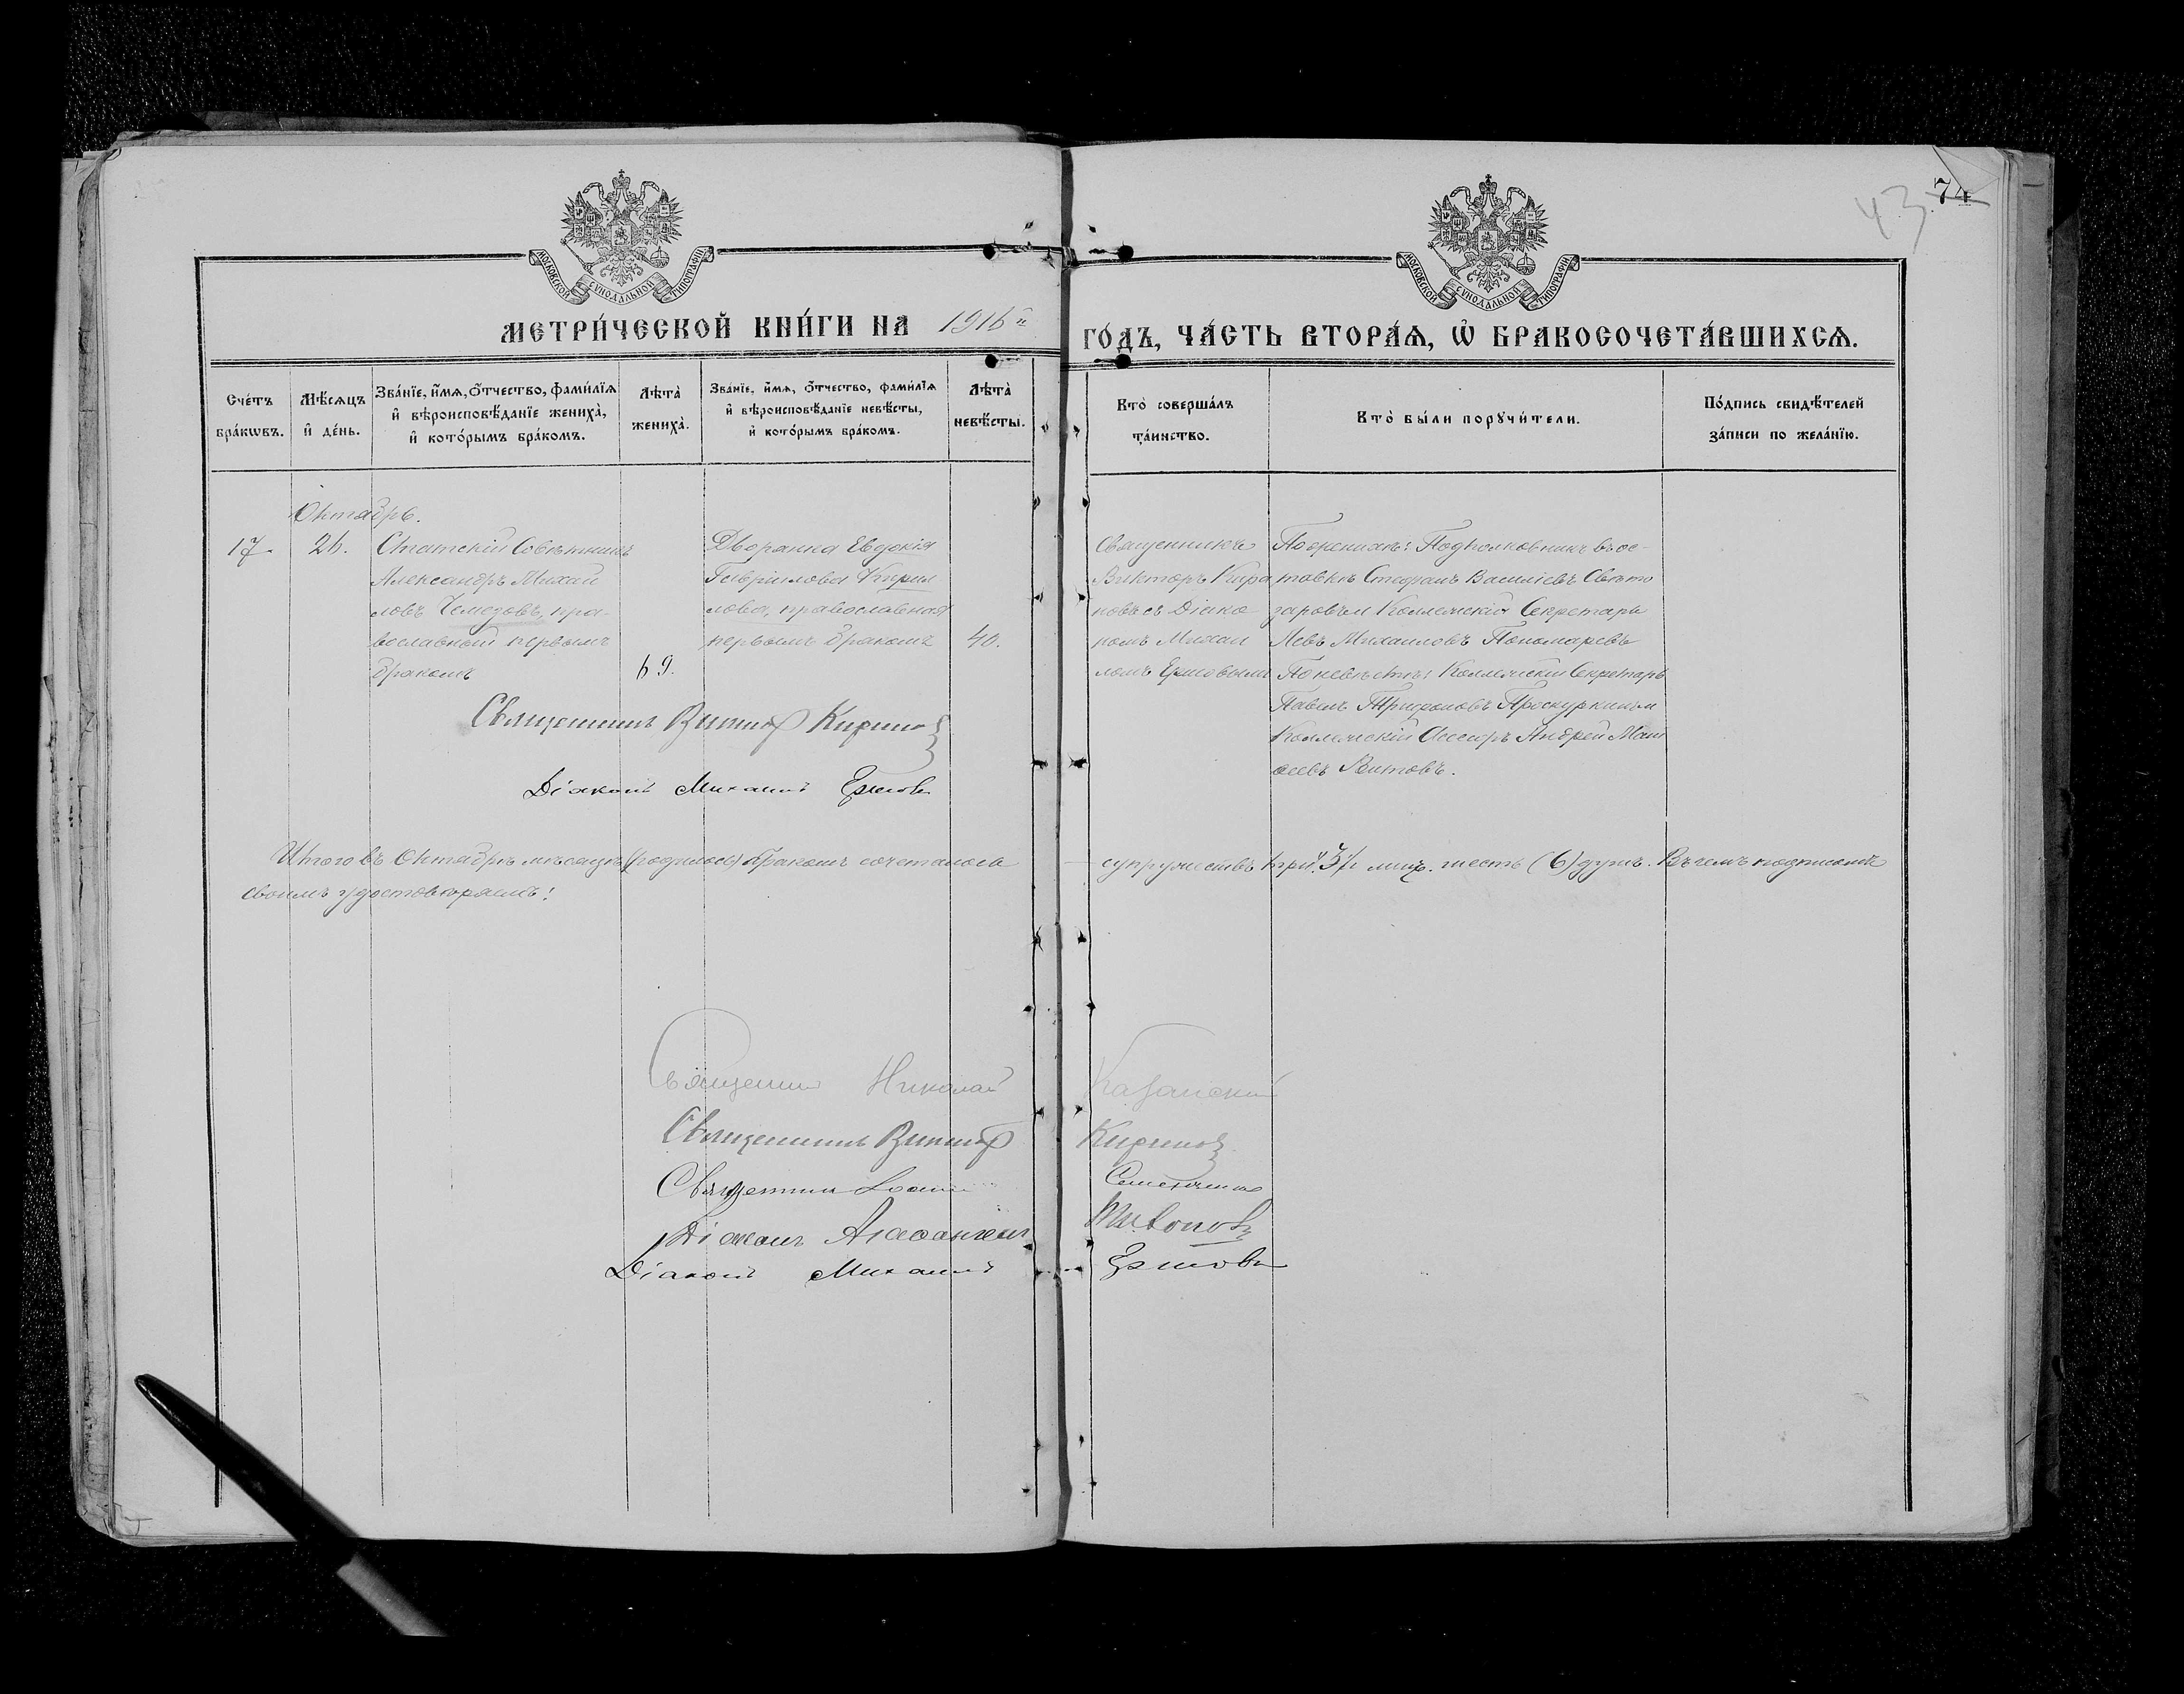 74
43
МОСКОВСКОЙ СУНОДАЛЬНОЙ ТИПОГРАФІИ
МОСКОВСКОЙ СУНОДАЛЬНОЙ ТИПОГРАФІИ
МЕТРИ́ЧЕСКОЙ КНИ́ГИ НА 1916й ГО́ДЪ, ЧА́СТЬ ВТОРА́Ѧ, Ѽ БРАКОСОЧЕТА́ВШИХСѦ.
Сче́тъ
бра́кѡвъ.
Мѣ́сѧцъ
и҆ де́нь.
Зва́нїе, и҆́мѧ, ѻ҆́тчество, фами́лїѧ
и҆ вѣроисповѣ́данїе жениха̀,
и҆ кото́рымъ бра́комъ.
Лѣта̀
жениха̀.
Зва́нїе, и҆́мѧ, ѻ҆́тчество, фами́лїѧ
и҆ вѣроисповѣ́данїе невѣ́сты,
и҆ кото́рымъ бра́комъ.
Лѣта̀
невѣ́сты.
Кто̀ соверша́лъ
та́инство.
Кто̀ бы́ли порꙋчи́тели.
По́дпись свидѣ́телей
за́писи по жела́нїю.
Октябрь.
17.
26.
Статскій Совѣтникъ
Александръ Михай
ловъ Чемезовъ, пра-
вославный первымъ
бракомъ
69.
Дворянка Евдокія
Гавріилова Кирил
лова, православная
первымъ бракомъ
40.
Священникъ
Викторъ Кири
новъ съ Діако
номъ Михаи
ломъ Ершовымъ
По женихѣ: Подполковникъ въ от-
ставкѣ Стефанъ Василіевъ Свѣто
заровъ и Коллежскій Секретарь
Левъ Михаиловъ Пономаревъ
По невѣстѣ: Коллежскій Секретарь
Павелъ Трифоновъ Проскуркинъ и
Коллежскій Ассесоръ Андрей
Витовъ.
Священникъ Викторъ Кириновъ
Діаконъ Михаилъ Ершовъ
Итого въ Октябрѣ мѣсяцѣ бракомъ сочеталось супружествъ три /3/ лицъ. шесть (6) душъ. Въ чемъ подписомъ
своимъ удостовѣряемъ:
Священникъ Николай Казанскій
Священникъ Викторъ Кириновъ
Священникъ Іоаннъ
Діаконъ Тихоновъ
Діаконъ Михаилъ Ершовъ